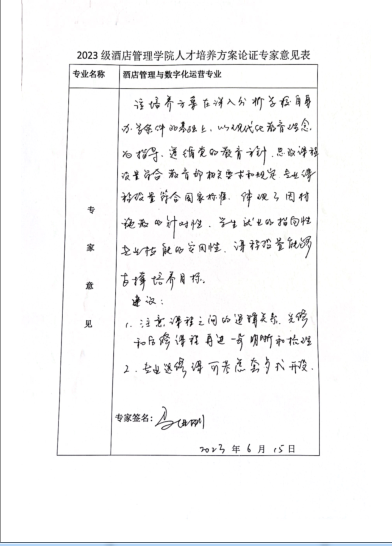 2023 级酒店管理学院人才培养方案论证专家意见表
专业名称 酒店管理与数字化运营专业
专家意见
该培养方案在深入分析学校自身
办学条件的基础上，以现代化教育理念
为指导，遵循党的教育方针，思政课程
设置符合教育部相关要求和规定，专业课
程设置符合国家标准，体现了因材
施教的针对性，学生就业的指向性
专业技能的实用性，课程设置能够
支撑培养目标。
建议：
1. 注意课程之间的逻辑关系，先修
和后修课程再进一步明晰和梳理
2. 专业选修课可考虑套餐式开设.
专家签名：
2023 年 6 月 15 日